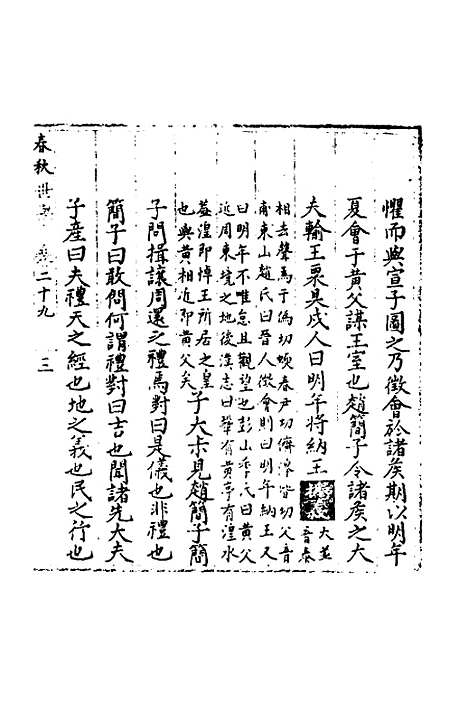 懼而與宣子圖之乃徵會於諸矦期以明年
夏會于黃父謀王室也趙簡子令諸矦之大
夫輸王粟具戍人曰明年將納王
大並
音泰
相去聲焉于偽切
父音
甫東山趙氏曰晉人徵會則曰明年納王又
曰明年不惟怠且觀望也彭山季氏曰黃父
近周東境之地後漢志曰
有黃亭有湟水
湟即悼王所居之皇
也與黃相近即黃父矣
子大叔見趙簡子簡
子問揖讓周還之禮焉對曰是儀也非禮也
簡子曰敢問何謂禮對曰吉也聞諸先大夫
子產曰夫禮天之經也地之義也民之行也
春秋世學
二十九
三